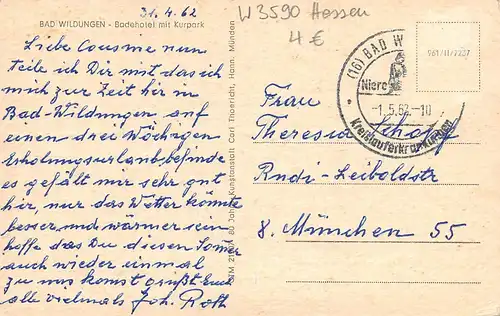 31.4.62
W3590 Hessen
4 €
BAD WILDUNGEN - Badehotel mit Kurpark
Liebe Cousine nun
teile ich Dir mit das ich
mich zur Zeit hir in
Bad-Wildungen auf
einen drei Wöchigen
Erholungsurlaub befinde
es gefält mir sehr gut
hir, nur das Wetter könnte
besser und wärmer sein
hoffe das Du diesen Somer
auch wieder einmal
zu uns komst grüßt Euch
alle vielmals Joh. Roth
80 Jahre Kunstanstalt Carl Thoericht, Hann. Münden
(16) BAD W
Niere
-1.5.62-10
Kreislauferkrankungen
961/11/2257
Frau
Theresia
Rudi-Leiboldstr
8. München 55